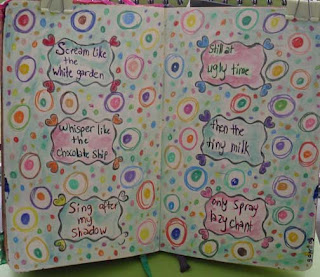 Scream like
the
white garden
whisper like
the
chocolate ship
Sing after
my
shadow
Still at
ugly time
then the
tiny milk
only spray
lazy chant